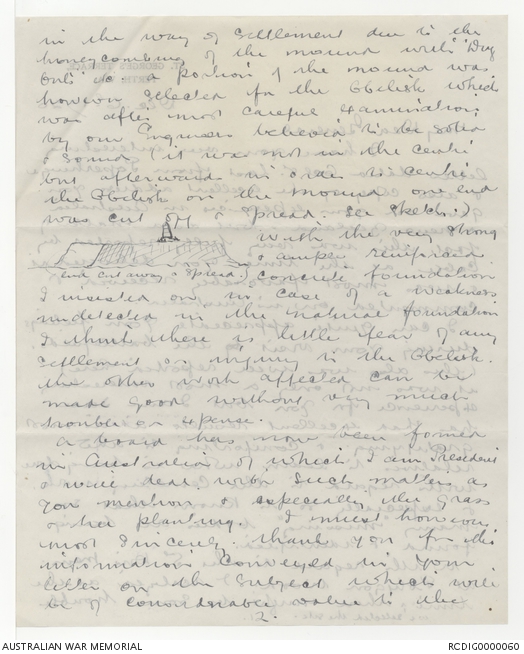 in the way of settlement due to the
honeycombing of the mound with "Dug
Outs" &c. a portion of the mound was
however selected for the Obelisk which
was after most careful examination
by our Engineers believed to be solid
& sound (it was not in the centre
but afterwards in order to centre
the Obelisk on the mound one end
was cut off & spread. See Sketch.)
With the very strong
& ample reinforced
end cut away & spread.) concrete foundation
I insisted on in case of a weakness
undetected in the natural foundation
I think there is little fear of any
settlement or injury to the Obelisk.
the other work affected can be
made good without very much
trouble or expense.
A board has now been formed
in Australia of which I am President
& will deal with such matters as
you mention & especially the grass
& other planting. I must however
most sincerely thank you for the
information conveyed in your
letter on the subject which will
be of considerable value to the
2.
AUSTRALIAN WAR MEMORIAL
RCDIG0000060